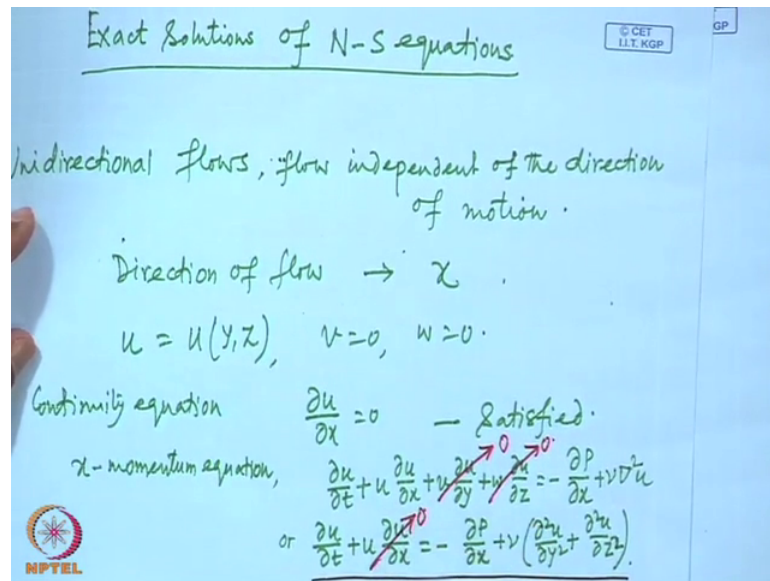 Exact Solutions of N-S equations
© CET
I.I.T. KGP
GP
Unidirectional flows, flow independent of the direction
of motion.
Direction of flow → x.
u = u(y,z), v=0, w=0.
Continuity equation ∂u/∂x = 0 — Satisfied.
x-momentum equation, ∂u/∂t + u ∂u/∂x + v ∂u/∂y + w ∂u/∂z = - ∂P/∂x + ν∇²u
0 0
or ∂u/∂t + u ∂u/∂x = - ∂P/∂x + ν(∂²u/∂y² + ∂²u/∂z²).
0
NPTEL